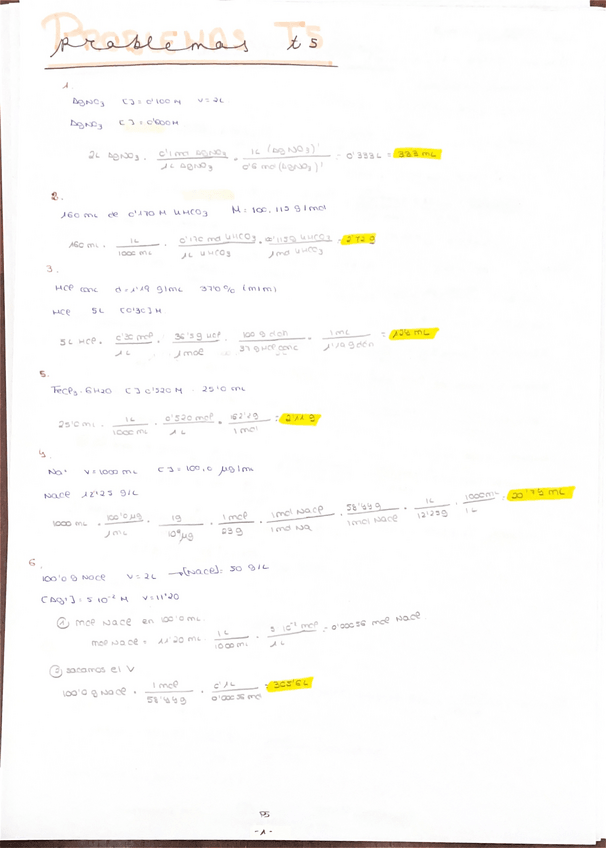 PROBLEMAS T5
problemas t5
1.
AgNO₃ [ ] = 0'100 M V = 2L
AgNO₃ [ ] = 0'600 M
2L AgNO₃ · 0'1 mol AgNO₃ / 1L AgNO₃ · 1L (AgNO₃)' / 0'6 mol (AgNO₃)' = 0'333L = 333 mL
2.
160 mL de 0'170 M KHCO₃ M = 100,115 g/mol
160 mL · 1L / 1000 mL · 0'170 mol KHCO₃ / 1L KHCO₃ · g KHCO₃ / 1mol KHCO₃ = 2'72 g
3.
HCl conc d = 1'19 g/mL 37'0% (m/m)
HCl 5L [0'30] M
5L HCl · 0'30 mol / 1L · 36'5 g HCl / 1 mol · 100 g dón / 37 g HCl conc · 1 mL / 1'19 g dón = 124 mL
5.
FeCl₃·6H₂O [ ] 0'520 M - 25'0 mL
25'0 mL · 1L / 1000 mL · 0'520 mol / 1L · 162'2 g / 1 mol = 2'11 g
4.
Na⁺ V = 1000 mL [ ] = 100,0 µg/mL
NaCl 12'25 g/L
1000 mL · 100'0 µg / 1 mL · 1g / 10⁶ µg · 1 mol / 23 g · 1 mol NaCl / 1 mol Na · 58'44 g / 1 mol NaCl · 1L / 12'25 g · 1000 mL / 1L = mL
6.
100'0 g NaCl V = 2L → [NaCl] = 50 g/L
[Ag⁺] = 5·10⁻² M V = 11'20
① mol NaCl en 100'0 mL.
mol NaCl = 11'20 mL · 1L / 1000 mL · 5·10⁻² mol / 1L = 0'00056 mol NaCl
② sacamos el V
100'0 g NaCl · 1 mol / 58'44 g · 0'1L / 0'00056 mol = 305'6 L
-1-